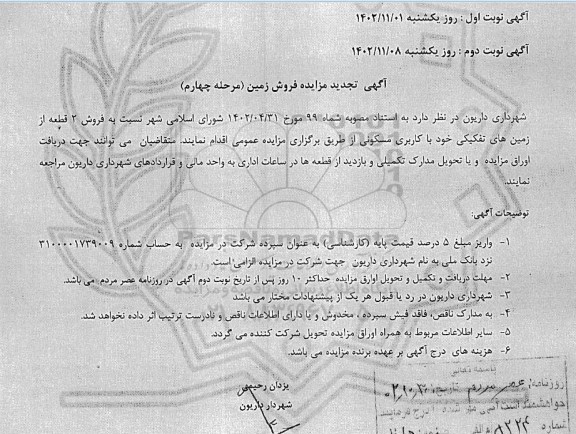 آگهی نوبت اول : روز یکشنبه ۱۴۰۲/۱۱/۰۱
آگهی نوبت دوم : روز یکشنبه ۱۴۰۲/۱۱/۰۸
آگهی تجدید مزایده فروش زمین (مرحله چهارم)
شهرداری داریون در نظر دارد به استناد مصوبه شماه ۹۹ مورخ ۱۴۰۲/۰۴/۳۱ شورای اسلامی شهر نسبت به فروش ۲ قطعه از
زمین های تفکیکی خود با کاربری مسکونی از طریق برگزاری مزایده عمومی اقدام نمایند. متقاضیان می توانند جهت دریافت
اوراق مزایده و یا تحویل مدارک تکمیلی و بازدید از قطعه ها در ساعات اداری به واحد مالی و قراردادهای شهرداری داریون مراجعه
نمایند.
ParsNamadData
توضیحات آگهی:
۱- واریز مبلغ ۵ درصد قیمت پایه (کارشناسی) به عنوان سپرده شرکت در مزایده به حساب شماره ۳۱۰۰۰۰۱۷۳۹۰۰۹
نزد بانک ملی به نام شهرداری داریون جهت شرکت در مزایده الزامی است.
۲- مهلت دریافت و تکمیل و تحویل اوارق مزایده حداکثر ۱۰ روز پس از تاریخ نوبت دوم آگهی در روزنامه عصر مردم می باشد.
۳- شهرداری داریون در رد یا قبول هر یک از پیشنهادات مختار می باشد
۴- به مدارک ناقص، فاقد فیش سپرده ، مخدوش و یا دارای اطلاعات ناقص و نادرست ترتیب اثر داده نخواهد شد.
۵- سایر اطلاعات مربوط به همراه اوراق مزایده تحویل شرکت کننده می گردد.
۶- هزینه های درج آگهی بر عهده برنده مزایده می باشد.
یزدان رحیمی
شهردار داریون
باسمه تعالی
روزنامه: عصر مردم تاریخ:
خواهشمند است آگهی درج فرمایید
شماره